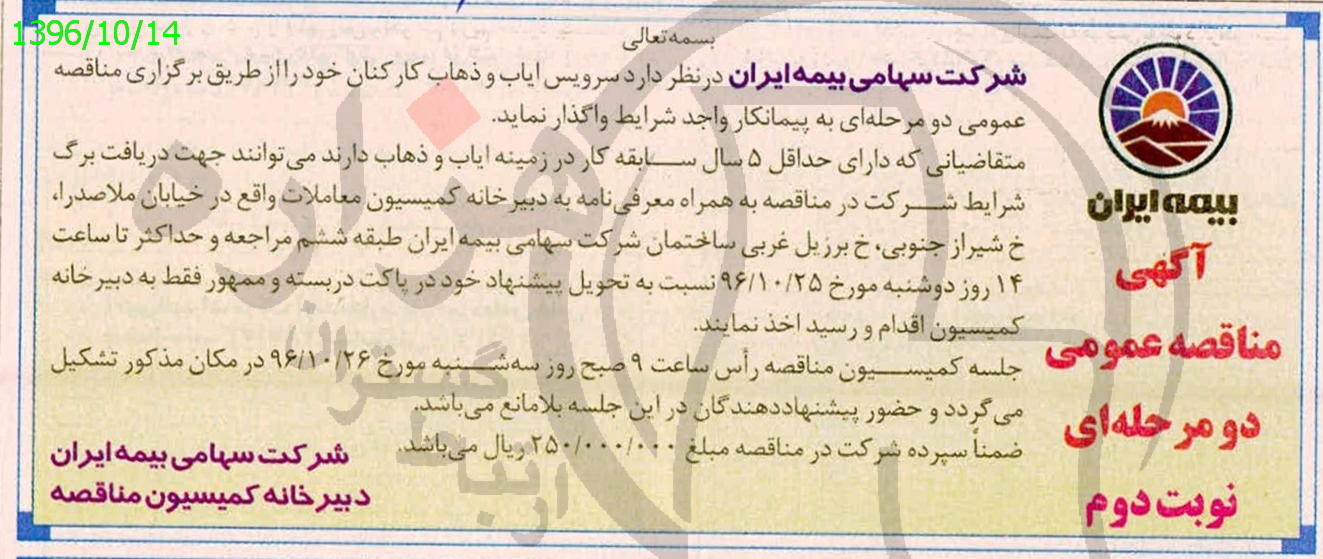 1396/10/14
بسمه تعالی
شرکت سهامی بیمه ایران درنظر دارد سرویس ایاب و ذهاب کارکنان خود را از طریق برگزاری مناقصه
عمومی دو مرحله‌ای به پیمانکار واجد شرایط واگذار نماید.
متقاضیانی که دارای حداقل ۵ سال سابقه کار در زمینه ایاب و ذهاب دارند می‌توانند جهت دریافت برگ
شرایط شرکت در مناقصه به همراه معرفی‌نامه به دبیرخانه کمیسیون معاملات واقع در خیابان ملاصدرا،
خ شیراز جنوبی، خ برزیل غربی ساختمان شرکت سهامی بیمه ایران طبقه ششم مراجعه و حداکثر تا ساعت
۱۴ روز دوشنبه مورخ ۹۶/۱۰/۲۵ نسبت به تحویل پیشنهاد خود در پاکت دربسته و ممهور فقط به دبیرخانه
کمیسیون اقدام و رسید اخذ نمایند.
جلسه کمیسیون مناقصه رأس ساعت ۹ صبح روز سه‌شنبه مورخ ۹۶/۱۰/۲۶ در مکان مذکور تشکیل
می‌گردد و حضور پیشنهاددهندگان در این جلسه بلامانع می‌باشد.
ضمناً سپرده شرکت در مناقصه مبلغ ۲۵۰/۰۰۰/۰۰۰ ریال می‌باشد.
شرکت سهامی بیمه ایران
دبیرخانه کمیسیون مناقصه
بیمه ایران
آگهی
مناقصه عمومی
دو مرحله‌ای
نوبت دوم
هزاره